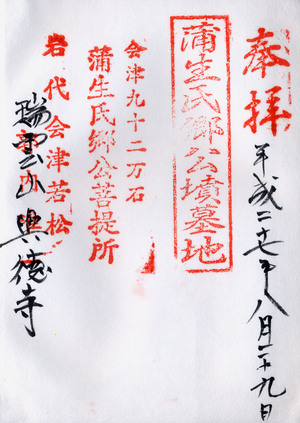 奉拝
平成二十七年八月二十九日
蒲生氏郷公墳墓地
会津九十二万石
蒲生氏郷公菩提所
岩代会津若松
瑞雲山興徳寺